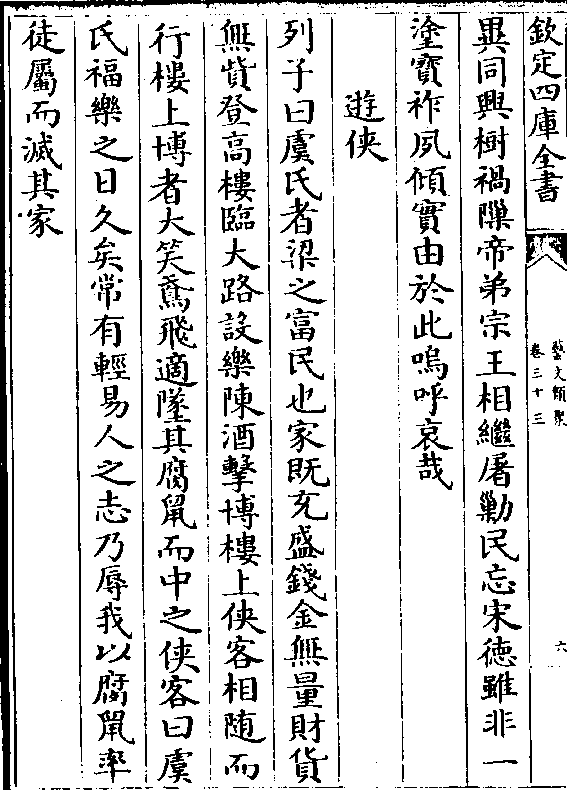 欽定四庫全書
藝文類聚
卷三十三
六
異同興樹禍隟帝弟宗王相繼屠勦民忘宋徳雖非一
塗寳祚夙傾實由於此嗚呼哀哉
遊俠
列子曰虞氏者梁之富民也家既充盛錢金無量財貨
無貲登高樓臨大路設樂陳酒擊博樓上俠客相随而
行樓上博者大笑鳶飛適墜其腐鼠而中之俠客曰虞
氏福樂之日久矣常有輕易人之志乃辱我以腐鼠率
徒屬而滅其家